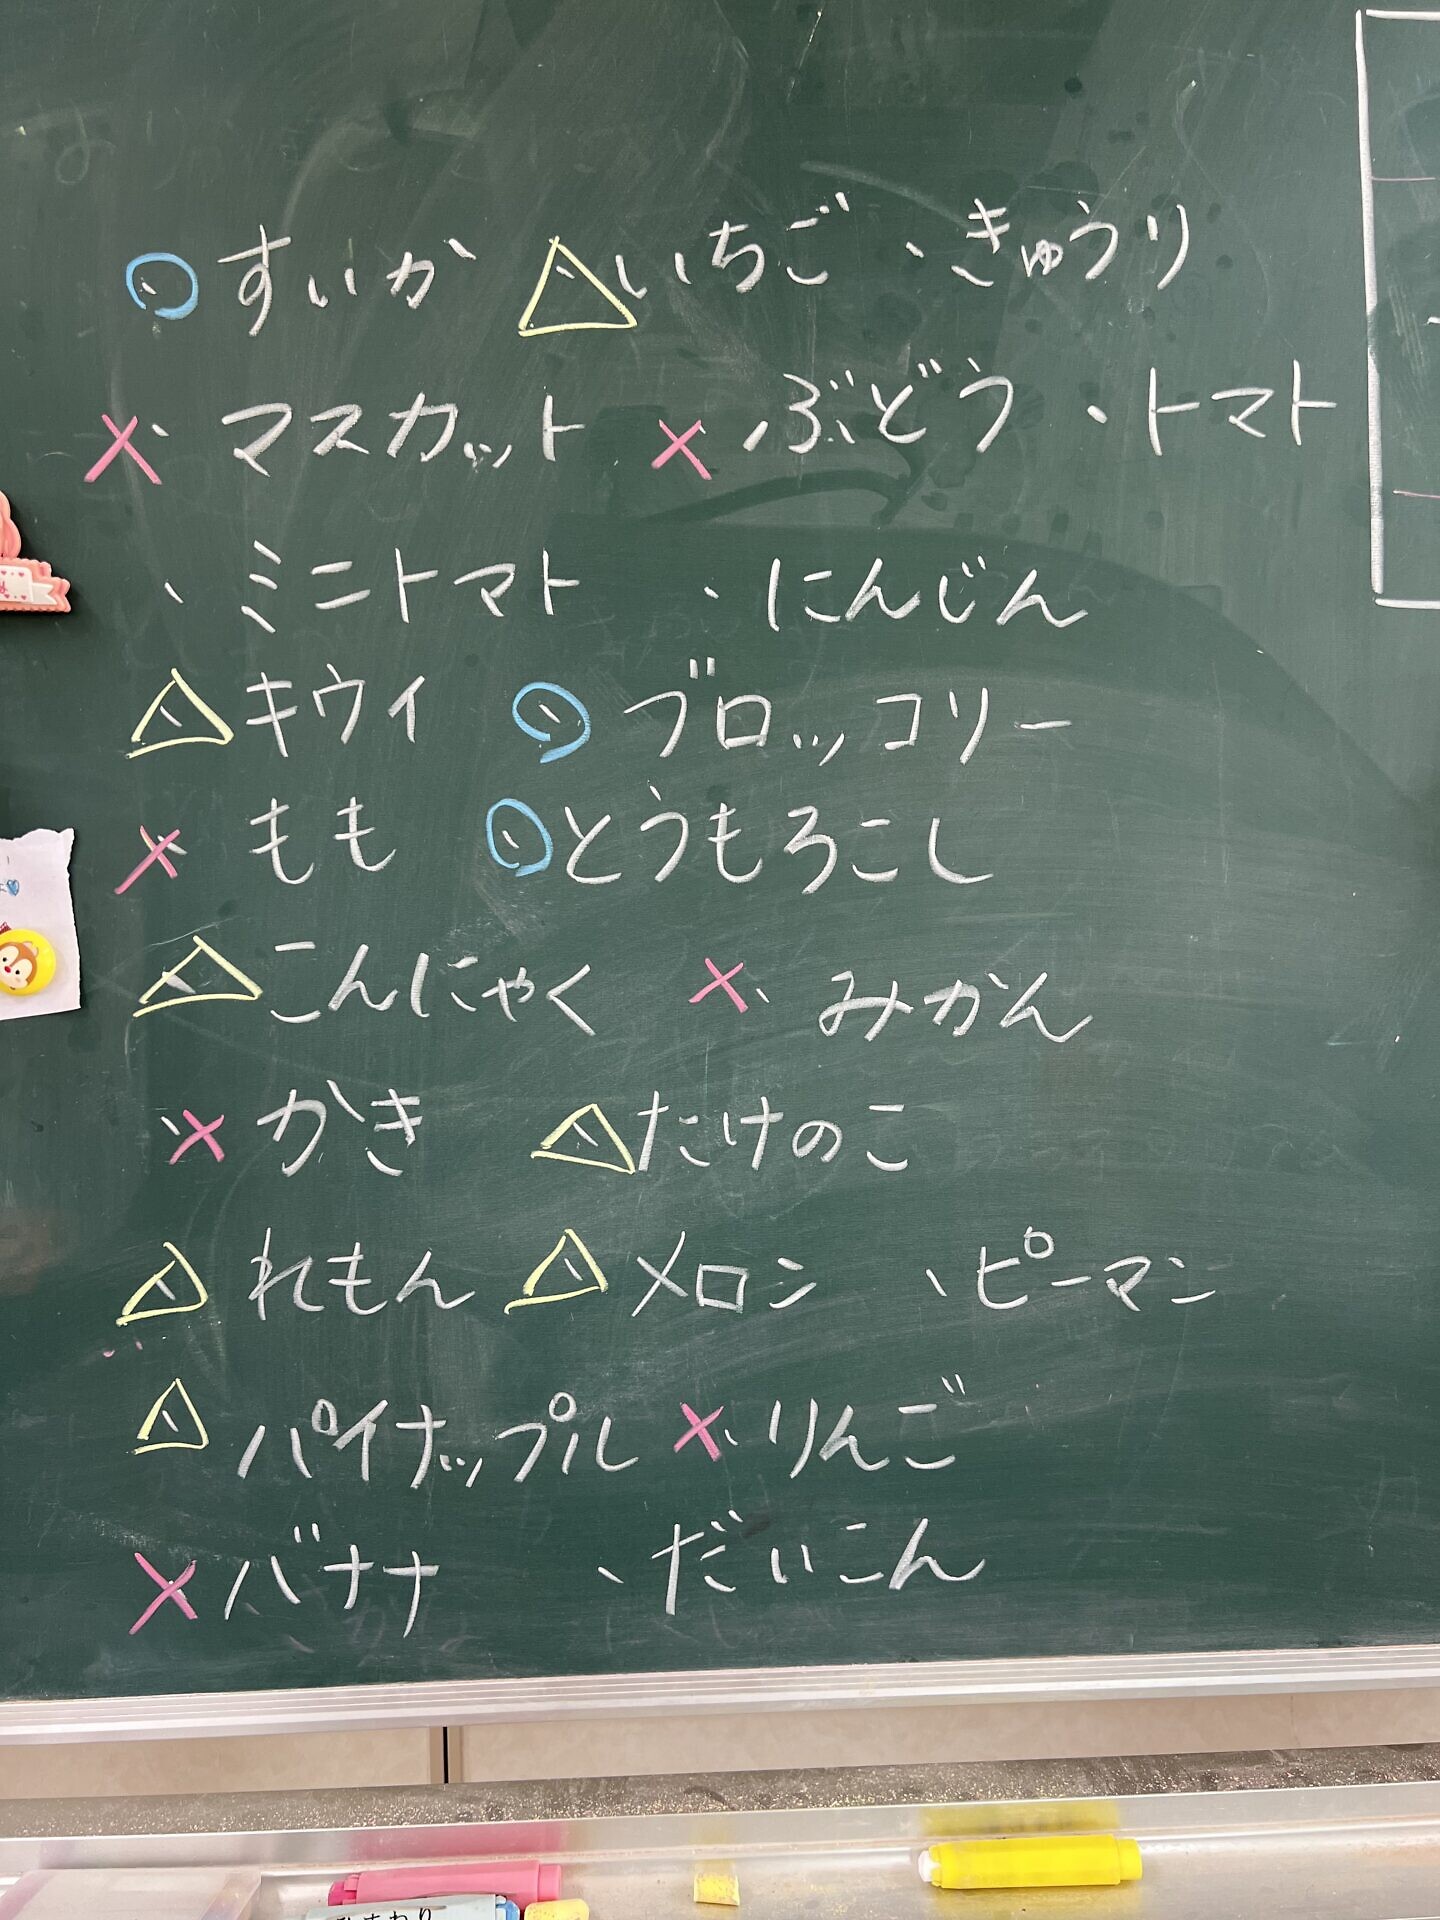 ・すいか ・いちご ・きゅうり
・マスカット ・ぶどう ・トマト
・ミニトマト ・にんじん
・キウイ ・ブロッコリー
・もも ・とうもろこし
・こんにゃく ・みかん
・かき ・たけのこ
・れもん ・メロン ・ピーマン
・パイナップル ・りんご
・バナナ ・だいこん